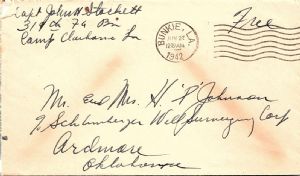 Capt John H Hackett
319th F A Bn
Camp Claiborne La
Free
BUNKIE, LA.
JUN 22
1942
Mr. and Mrs. H. P. Johnson
% Schlumberger Well Surveying Corp
Ardmore
Oklahoma